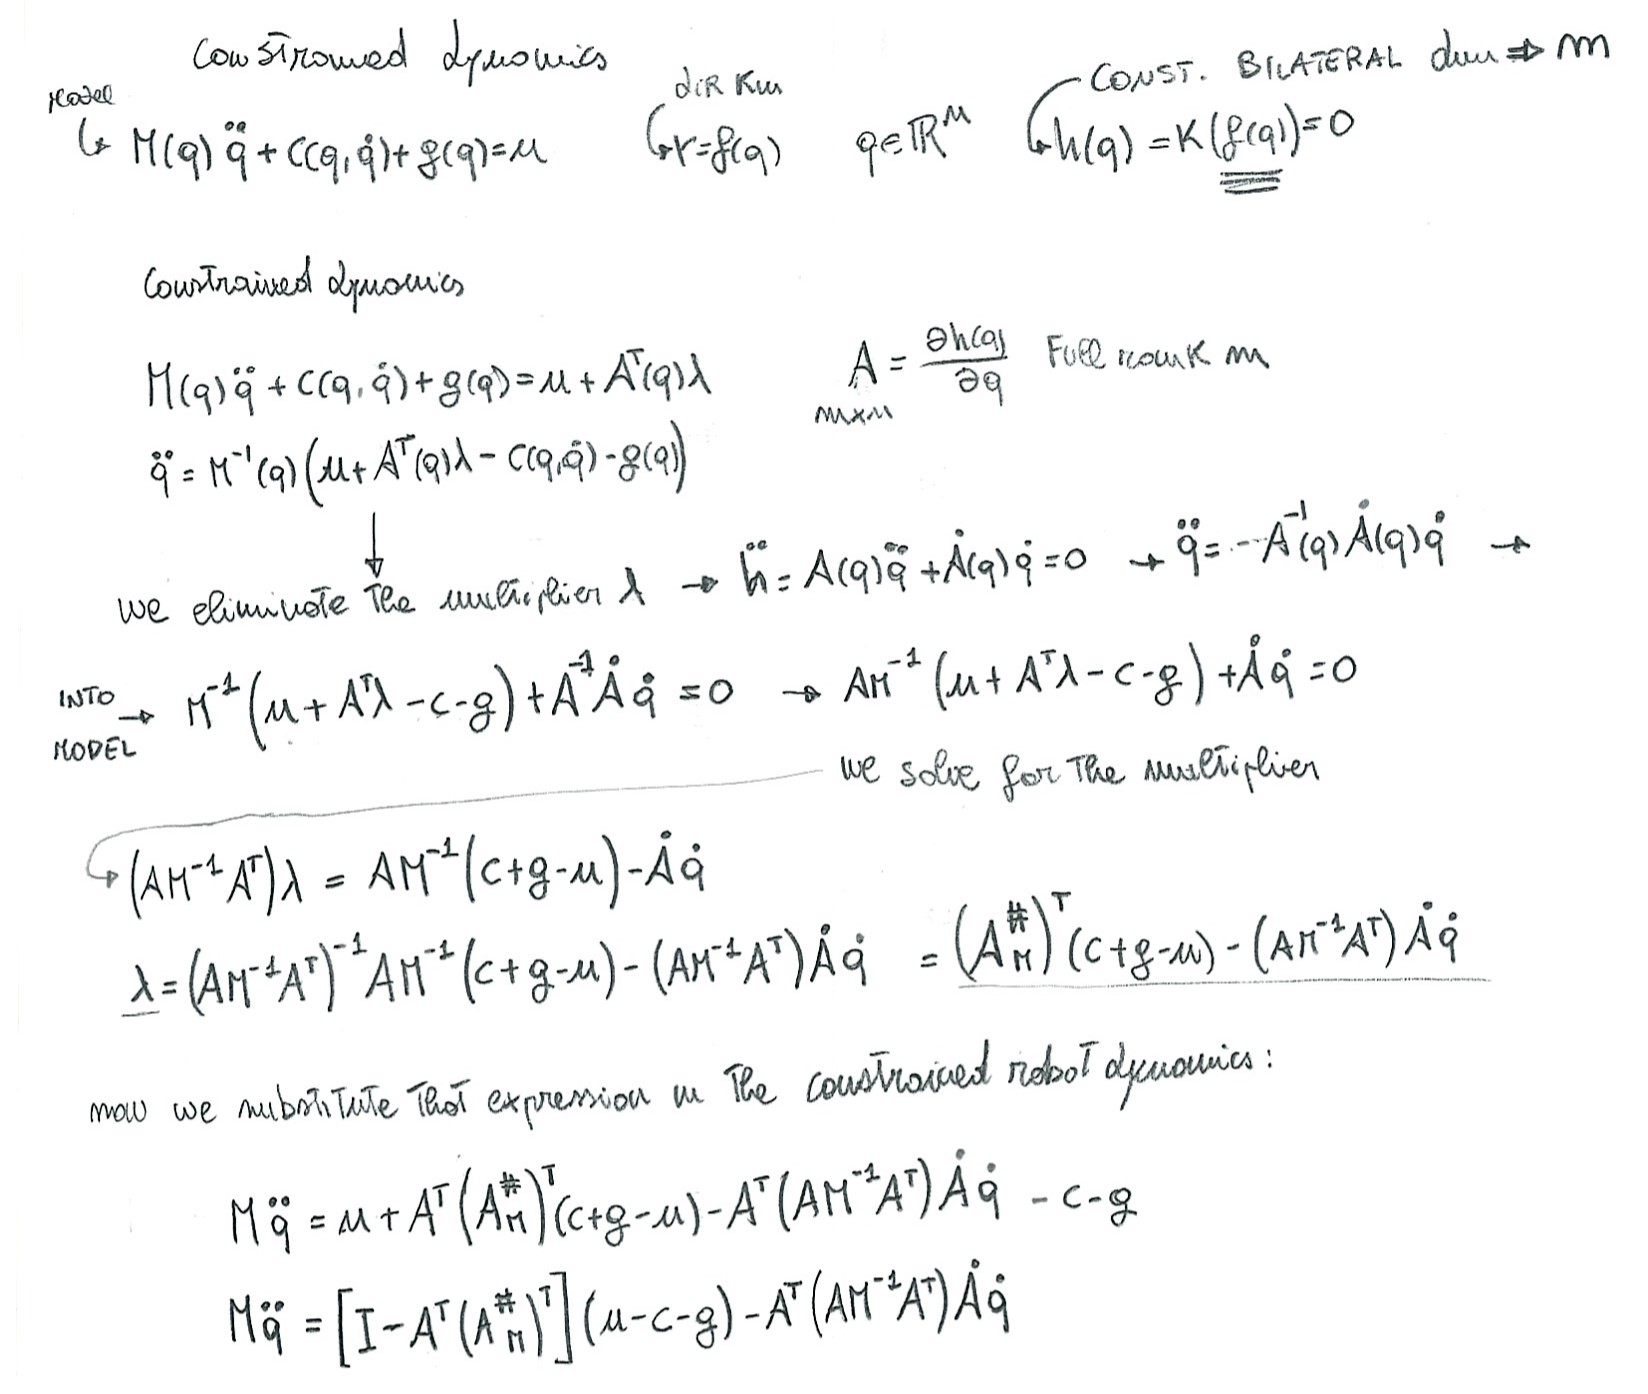 Constrained dynamics
Model
M(q) q̈ + C(q, q̇) + g(q) = u
dir Kin
r = f(q)
q ∈ ℝᴺ
CONST. BILATERAL dim ⇒ m
h(q) = K(f(q)) = 0
Constrained dynamics
M(q) q̈ + C(q, q̇) + g(q) = u + Aᵀ(q)λ
A = ∂h(q)/∂q Full rank m
m×n
q̈ = M⁻¹(q) (u + Aᵀ(q)λ - C(q, q̇) - g(q))
↓
we eliminate the multiplier λ → ḧ = A(q)q̈ + Ȧ(q) q̇ = 0 → q̈ = -A⁻¹(q) Ȧ(q) q̇ →
INTO MODEL → M⁻¹ (u + Aᵀλ - c - g) + A⁻¹ Ȧ q̇ = 0 → AM⁻¹ (u + Aᵀλ - c - g) + Ȧ q̇ = 0
we solve for the multiplier
(AM⁻¹Aᵀ)λ = AM⁻¹(c + g - u) - Ȧ q̇
λ = (AM⁻¹Aᵀ)⁻¹ AM⁻¹ (c + g - u) - (AM⁻¹Aᵀ) Ȧ q̇ = (A#M)ᵀ (c + g - u) - (AM⁻¹Aᵀ) Ȧ q̇
now we substitute that expression in the constrained robot dynamics:
M q̈ = u + Aᵀ (A#M)ᵀ (c + g - u) - Aᵀ (AM⁻¹Aᵀ) Ȧ q̇ - c - g
M q̈ = [I - Aᵀ (A#M)ᵀ] (u - c - g) - Aᵀ (AM⁻¹Aᵀ) Ȧ q̇